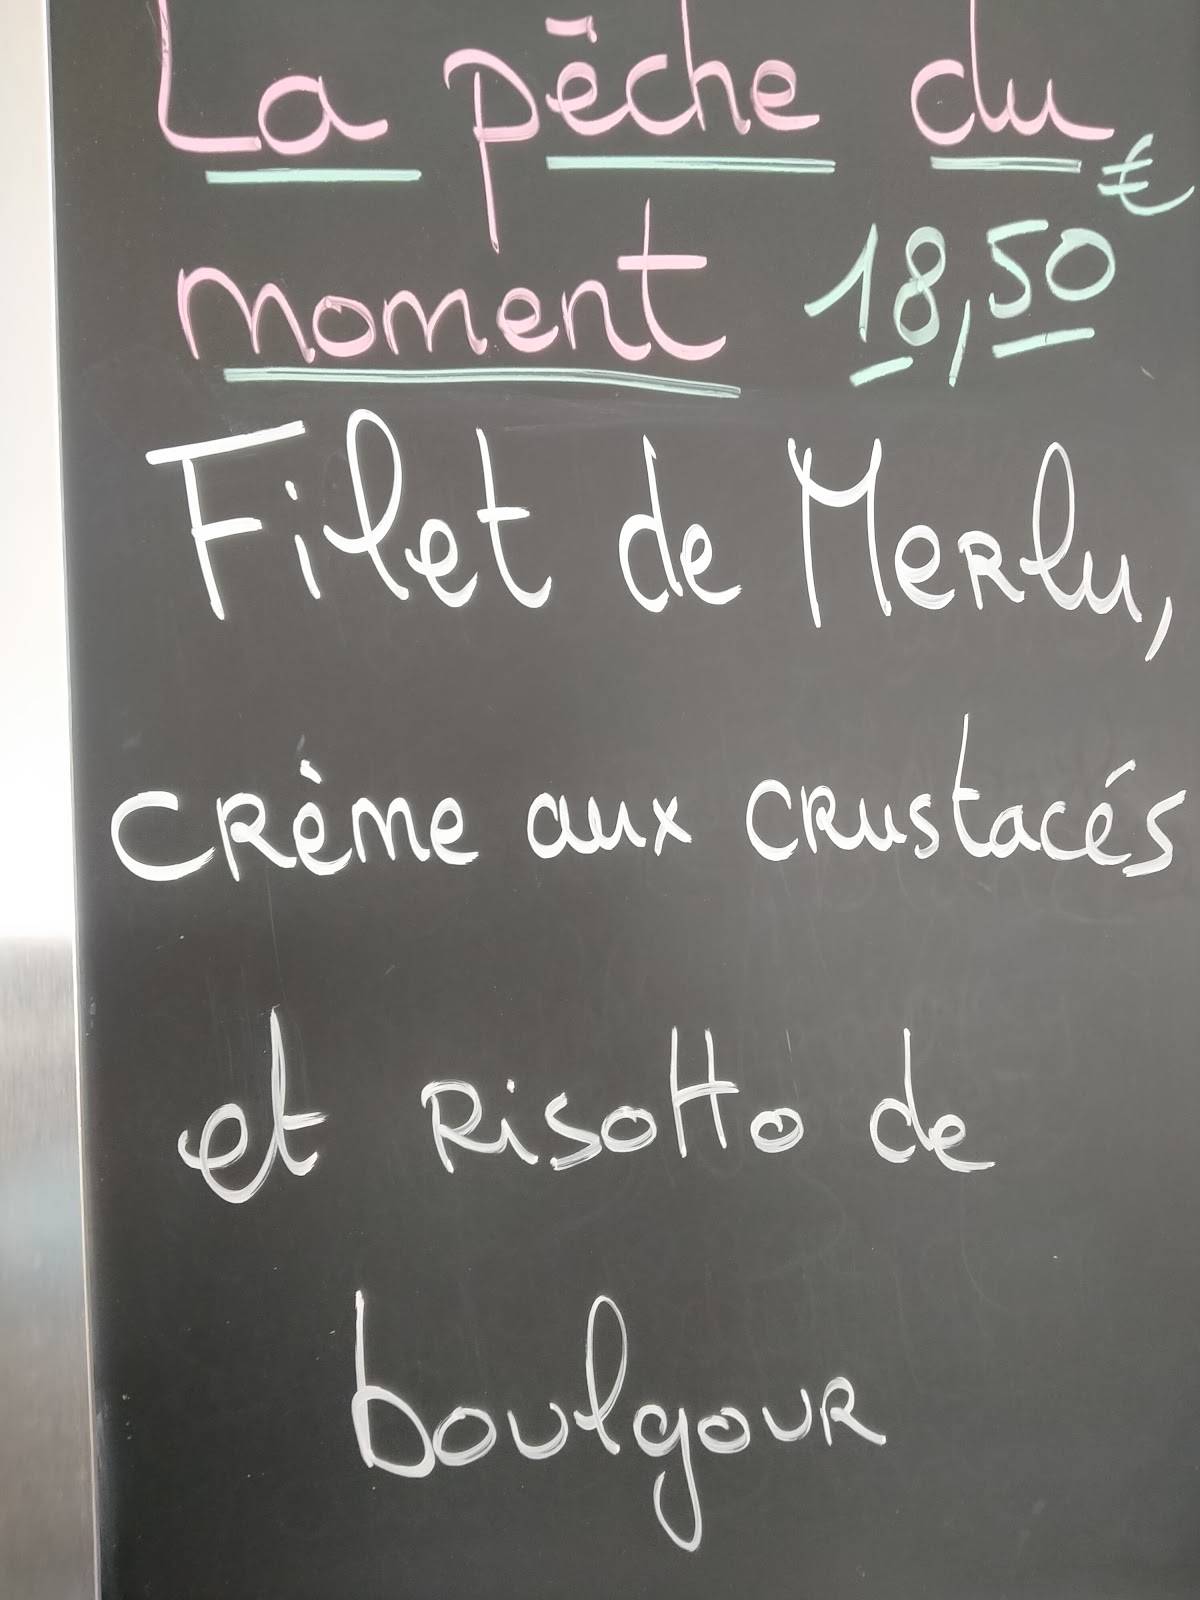 La pêche du
moment 18,50 €
Filet de Merlu,
crème aux crustacés
et risotto de
boulgour